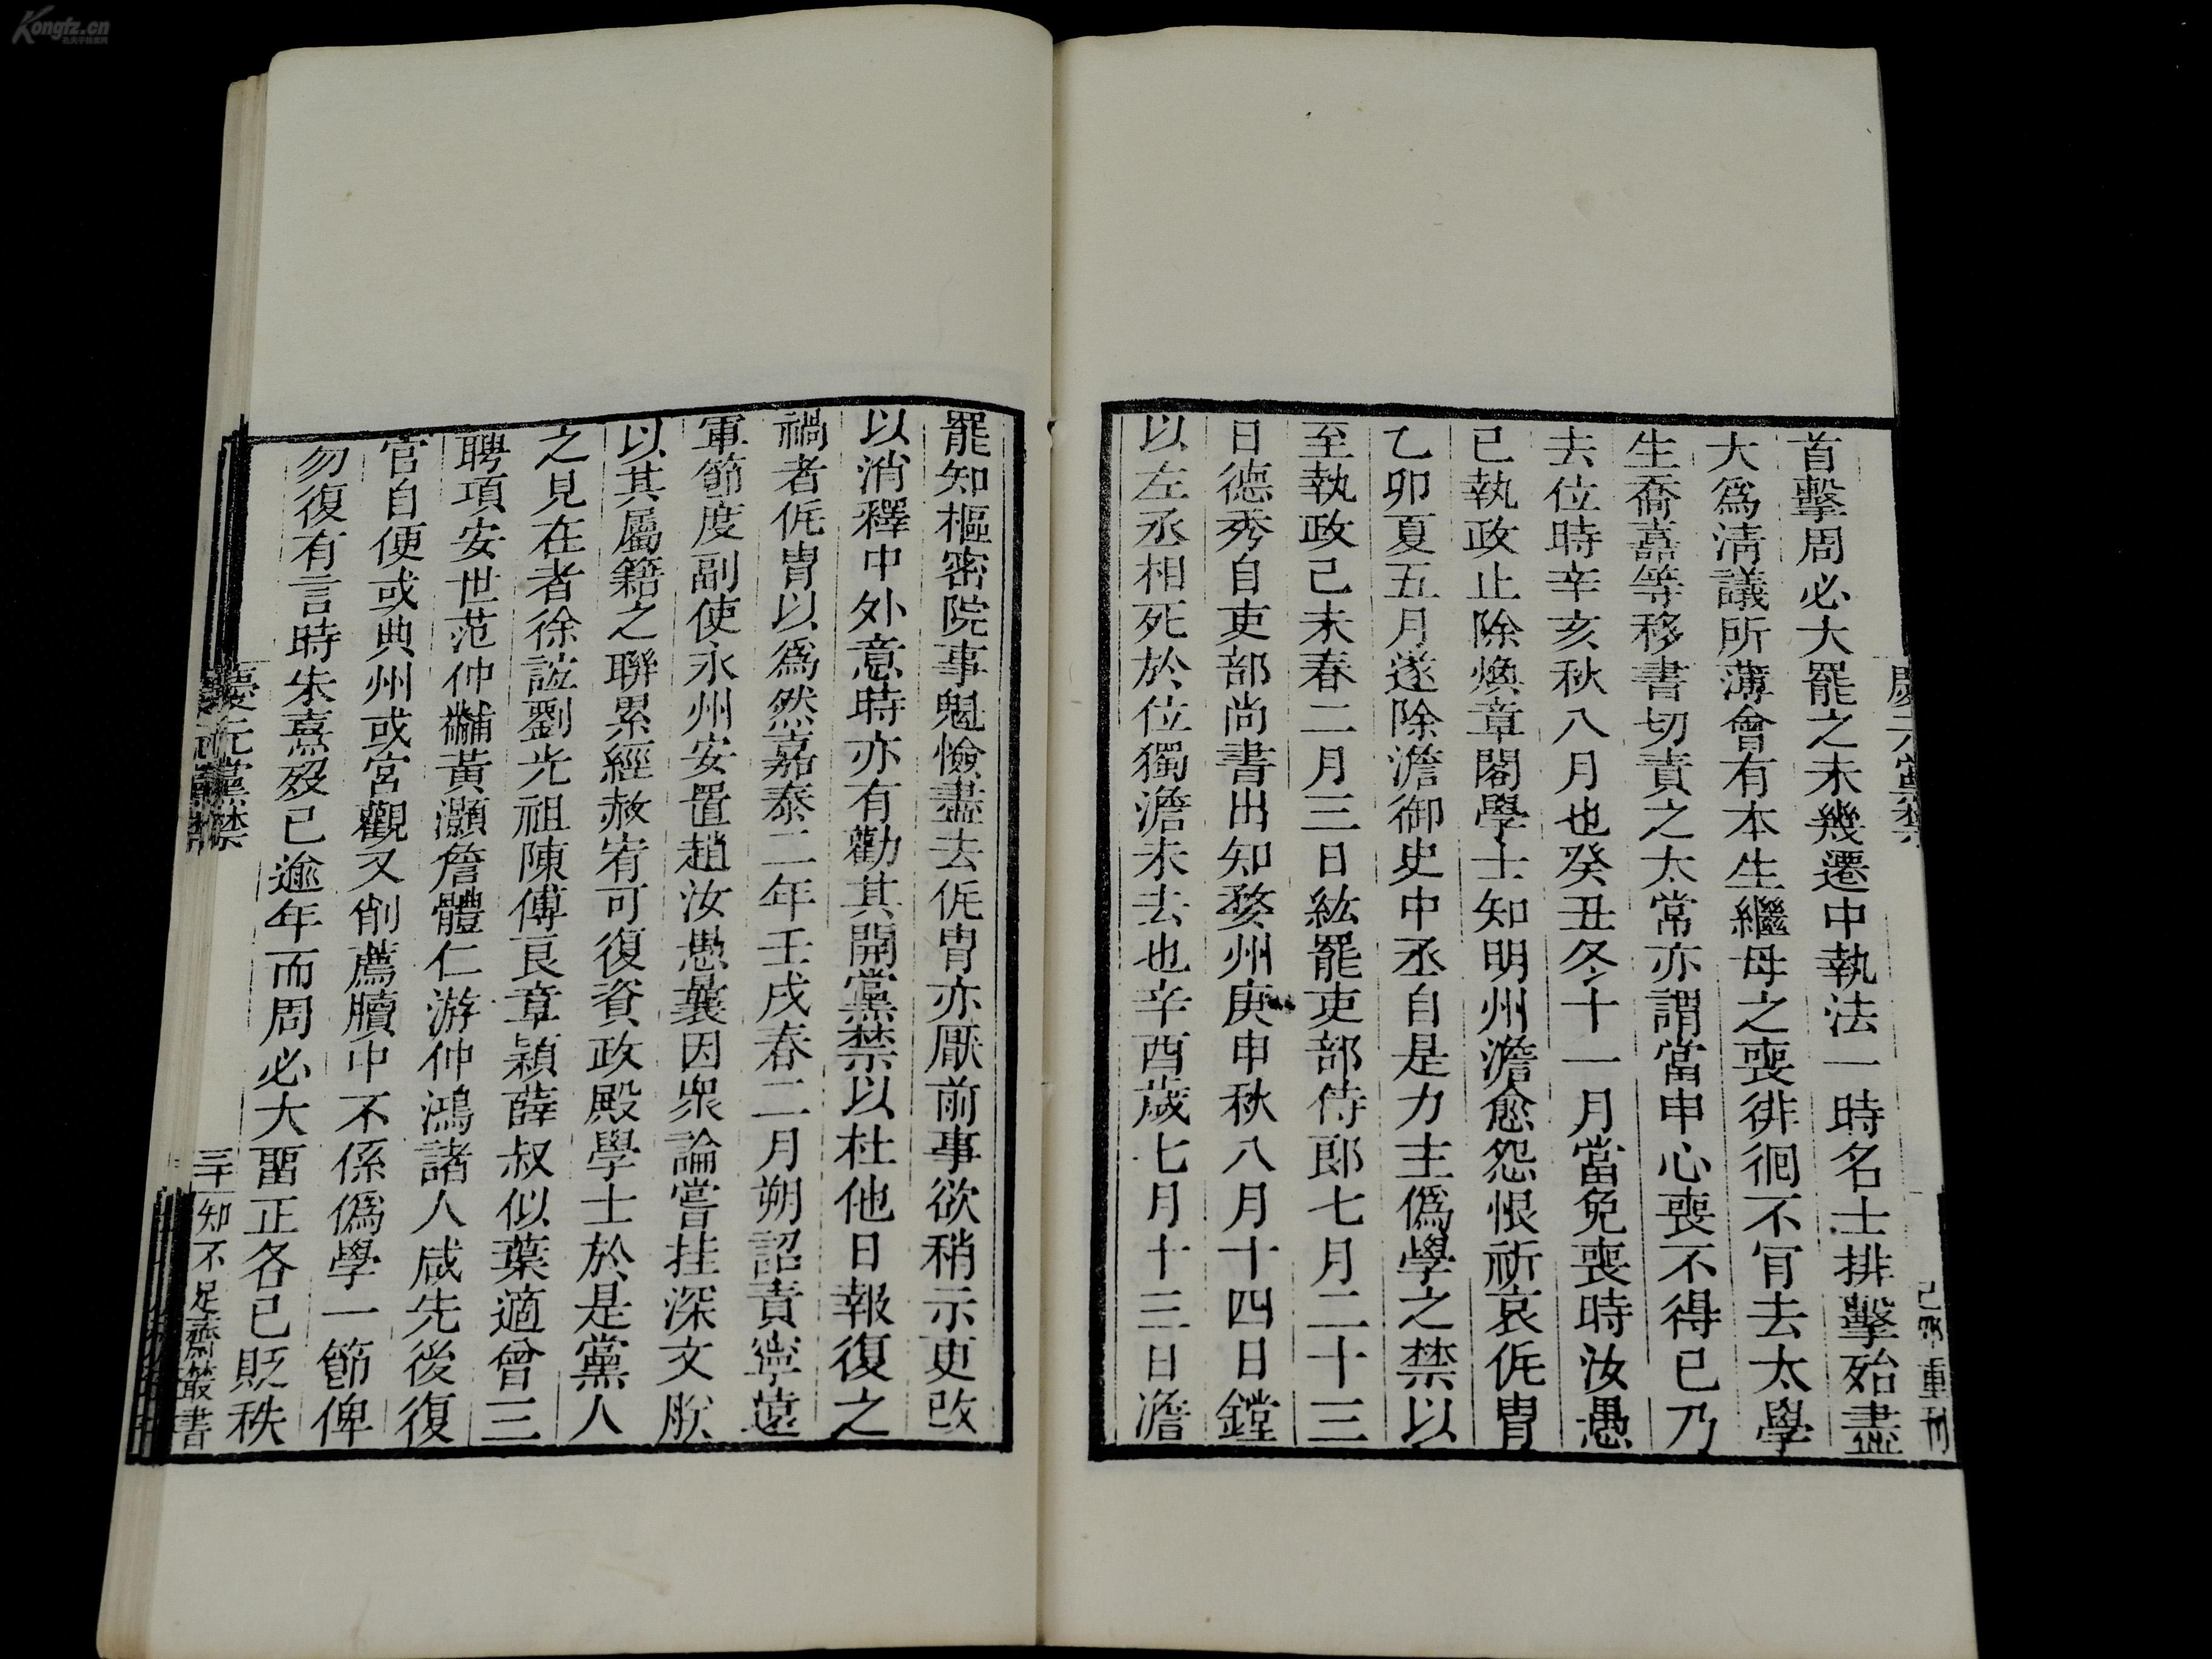 首擊周必大罷之未幾遷中執法一時名士排擊殆盡
大爲清議所薄會有本生繼母之喪徘徊不肎去太學
生喬嚞等移書切責之太常亦謂當申心喪不得已乃
去位時辛亥秋八月也癸丑冬十一月當免喪時汝愚
已執政止除煥章閣學士知明州澹愈怨恨祈哀侂胄
乙卯夏五月遂除澹御史中丞自是力主僞學之禁以
至執政己未春二月三日紘罷吏部侍郎七月二十三
日德秀自吏部尚書出知婺州庚申秋八月十四日鏜
以左丞相死於位獨澹未去也辛酉歲七月十三日澹
罷知樞密院事魁憸盡去侂胄亦厭前事欲稍示更改
以消釋中外意時亦有勸其開黨禁以杜他日報復之
禍者侂胄以爲然嘉泰二年壬戌春二月朔詔責寧遠
軍節度副使永州安置趙汝愚曩因眾論嘗挂深文肰
以其屬籍之聯累經赦宥可復資政殿學士於是黨人
之見在者徐誼劉光祖陳傅良章穎薛叔似葉適曾三
聘項安世范仲黼黃灝詹體仁游仲鴻諸人咸先後復
官自便或典州或宮觀又削薦牘中不係僞學一節俾
勿復有言時朱熹歿已逾年而周必大畱正各已貶秩
慶元黨禁
三十一 知不足齋叢書
Kongfz.cn